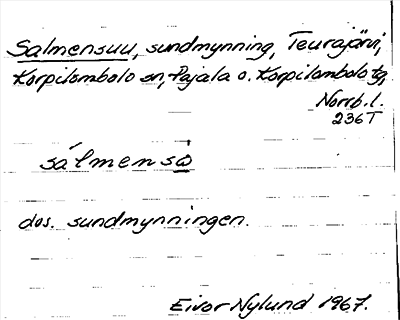 Salmensuu, sundmynning, Teurajärvi,
Korpilombolo sn, Pajala o. Korpilombolo tg,
Norrb. l.
236 T
sálmensȯ̲
dvs. sundmynningen.
Eivor Nylund 1967.